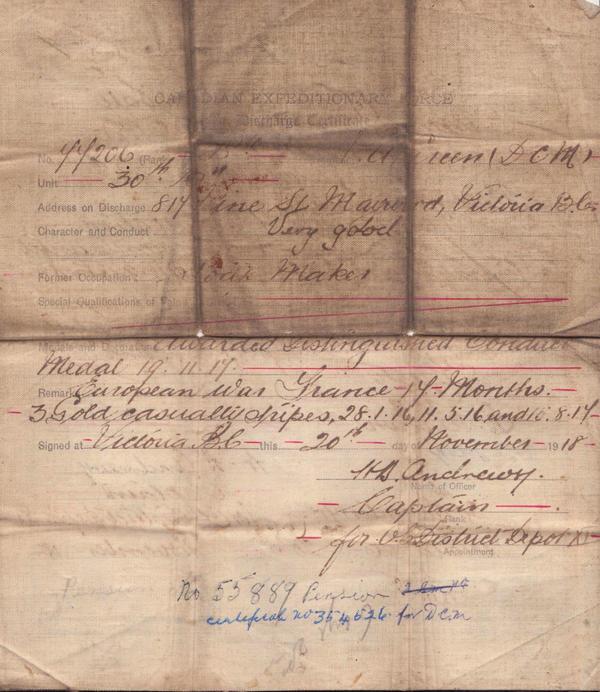 CANADIAN EXPEDITIONARY FORCE
Discharge Certificate
No. 77206 (Rank) Green (D.C.M)
Unit 30th
Address on Discharge 817 Pine St Maywood, Victoria B.C.
Character and Conduct Very good
Former Occupation: Maker
Special Qualifications of
Medals and Decorations Awarded Distinguished Conduct
Medal 19.11.17.
Remarks European War France 17 Months.
3 Gold casualty stripes, 28.1.16, 11.5.16 and 10.8.17
Signed at Victoria B.C this 20th day of November 1918
H.B. Andrews.
Name of Officer
Captain
Rank
for O. District Depot XI
Appointment
Pension No 55889 Pension
certificate no 354526 for D.C.M